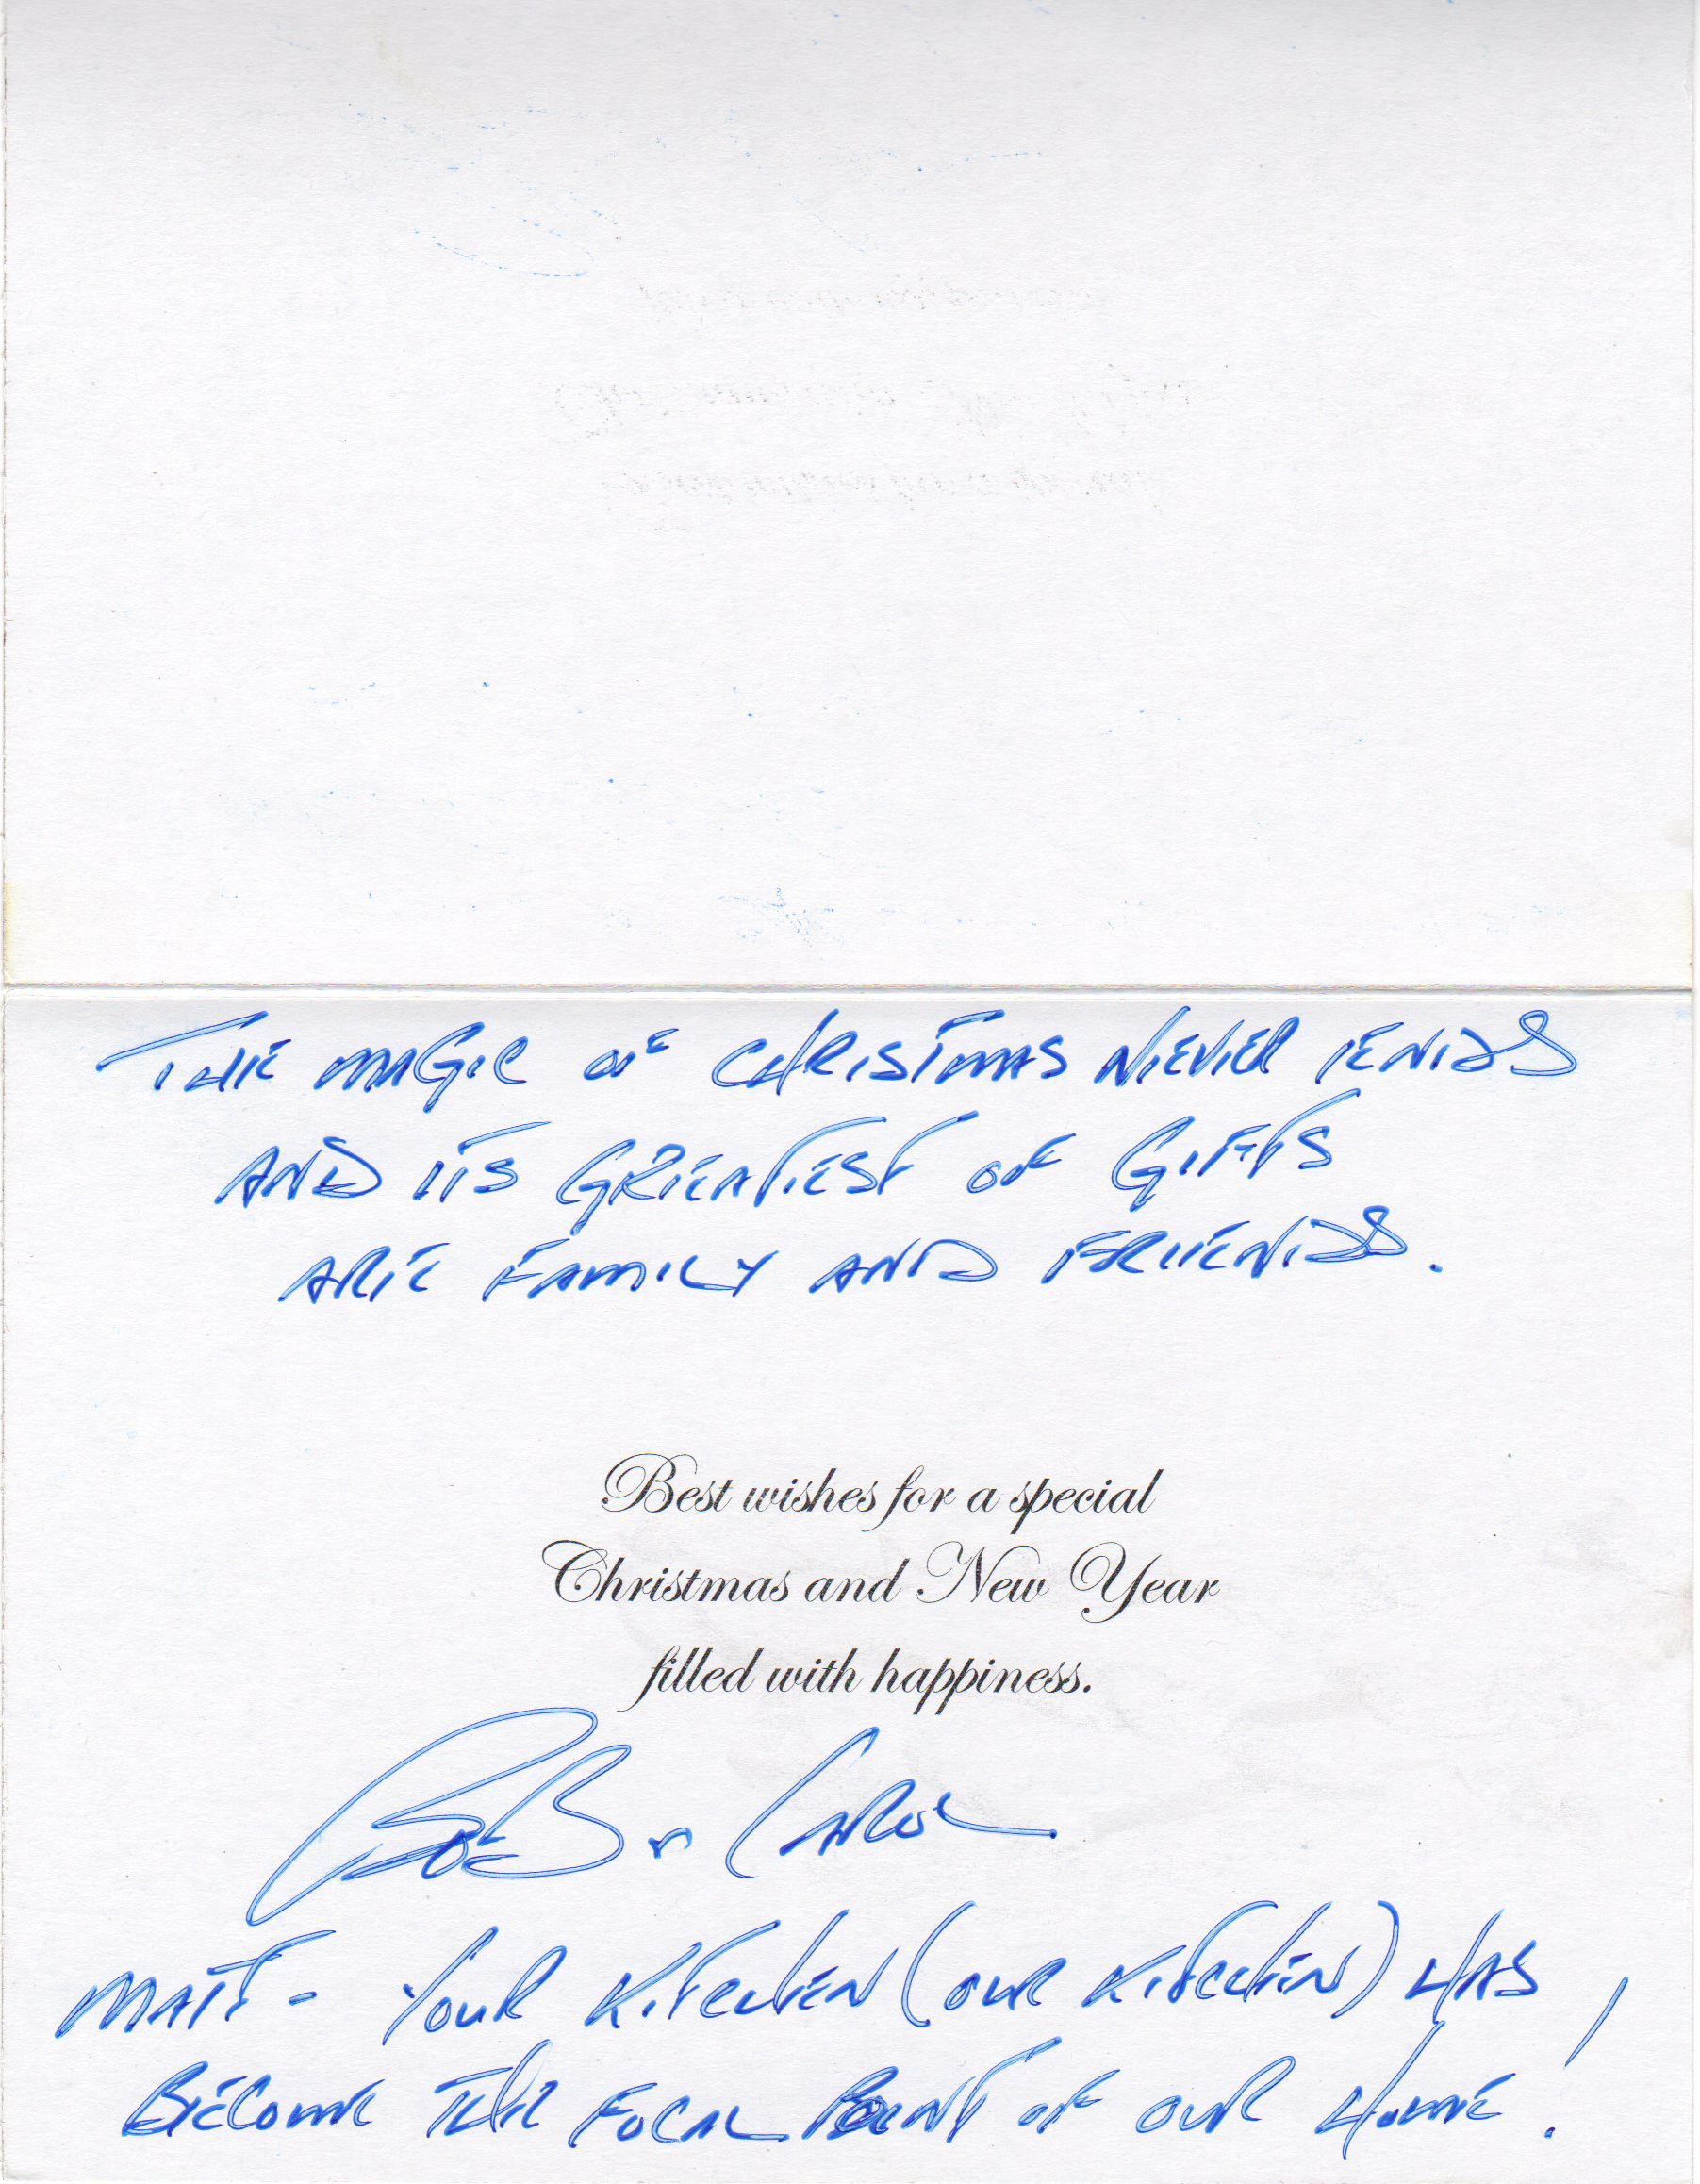 THE MAGIC OF CHRISTMAS NEVER ENDS
AND ITS GREATEST OF GIFTS
ARE FAMILY AND FRIENDS.
Best wishes for a special
Christmas and New Year
filled with happiness.
BOB & CAROL
MATT - YOUR KITCHEN (OUR KITCHEN) HAS
BECOME THE FOCAL POINT OF OUR HOME!